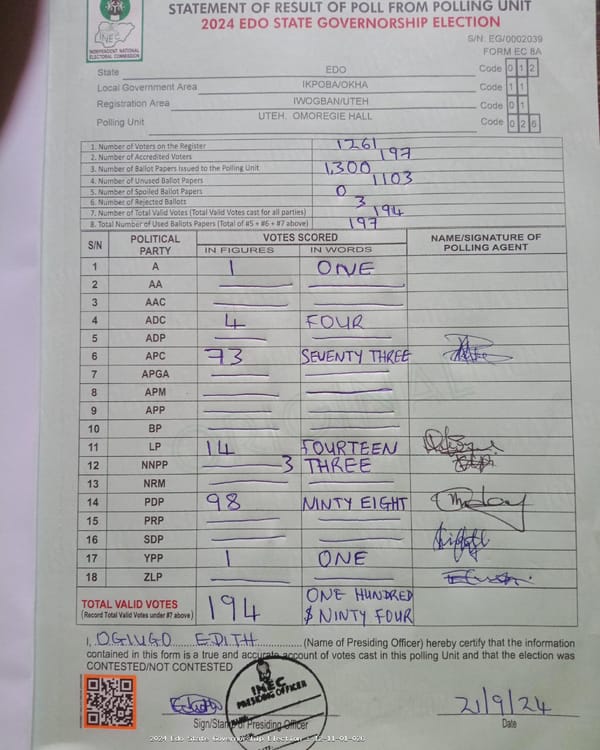 STATEMENT OF RESULT OF POLL FROM POLLING UNIT
2024 EDO STATE GOVERNORSHIP ELECTION
INEC
INDEPENDENT NATIONAL ELECTORAL COMMISSION
S/N: EG/0002039
FORM EC 8A
State EDO Code 0 1 2
Local Government Area IKPOBA/OKHA Code 1 1
Registration Area IWOGBAN/UTEH Code 0 1
Polling Unit UTEH. OMOREGIE HALL Code 0 2 6
1. Number of Voters on the Register 1261
2. Number of Accredited Voters 197
3. Number of Ballot Papers Issued to the Polling Unit 1,300
4. Number of Unused Ballot Papers 1103
5. Number of Spoiled Ballot Papers 0
6. Number of Rejected Ballots 3
7. Number of Total Valid Votes (Total Valid Votes cast for all parties) 194
8. Total Number of Used Ballots Papers (Total of #5 + #6 + #7 above) 197
S/N POLITICAL PARTY VOTES SCORED NAME/SIGNATURE OF POLLING AGENT
IN FIGURES IN WORDS
1 A 1 ONE
2 AA
3 AAC
4 ADC 4 FOUR
5 ADP
6 APC 73 SEVENTY THREE
7 APGA
8 APM
9 APP
10 BP
11 LP 14 FOURTEEN
12 NNPP 3 THREE
13 NRM
14 PDP 98 NINTY EIGHT
15 PRP
16 SDP
17 YPP 1 ONE
18 ZLP
TOTAL VALID VOTES 194 ONE HUNDRED
(Record Total Valid Votes under #7 above) $ NINTY FOUR
I, OGIUGO EDITH (Name of Presiding Officer) hereby certify that the information
contained in this form is a true and accurate account of votes cast in this polling Unit and that the election was
CONTESTED/NOT CONTESTED
INEC
PRESIDING OFFICER
21/9/24
Sign/Stamp of Presiding Officer Date
2024 Edo State Governorship Election - 12-11-01-026